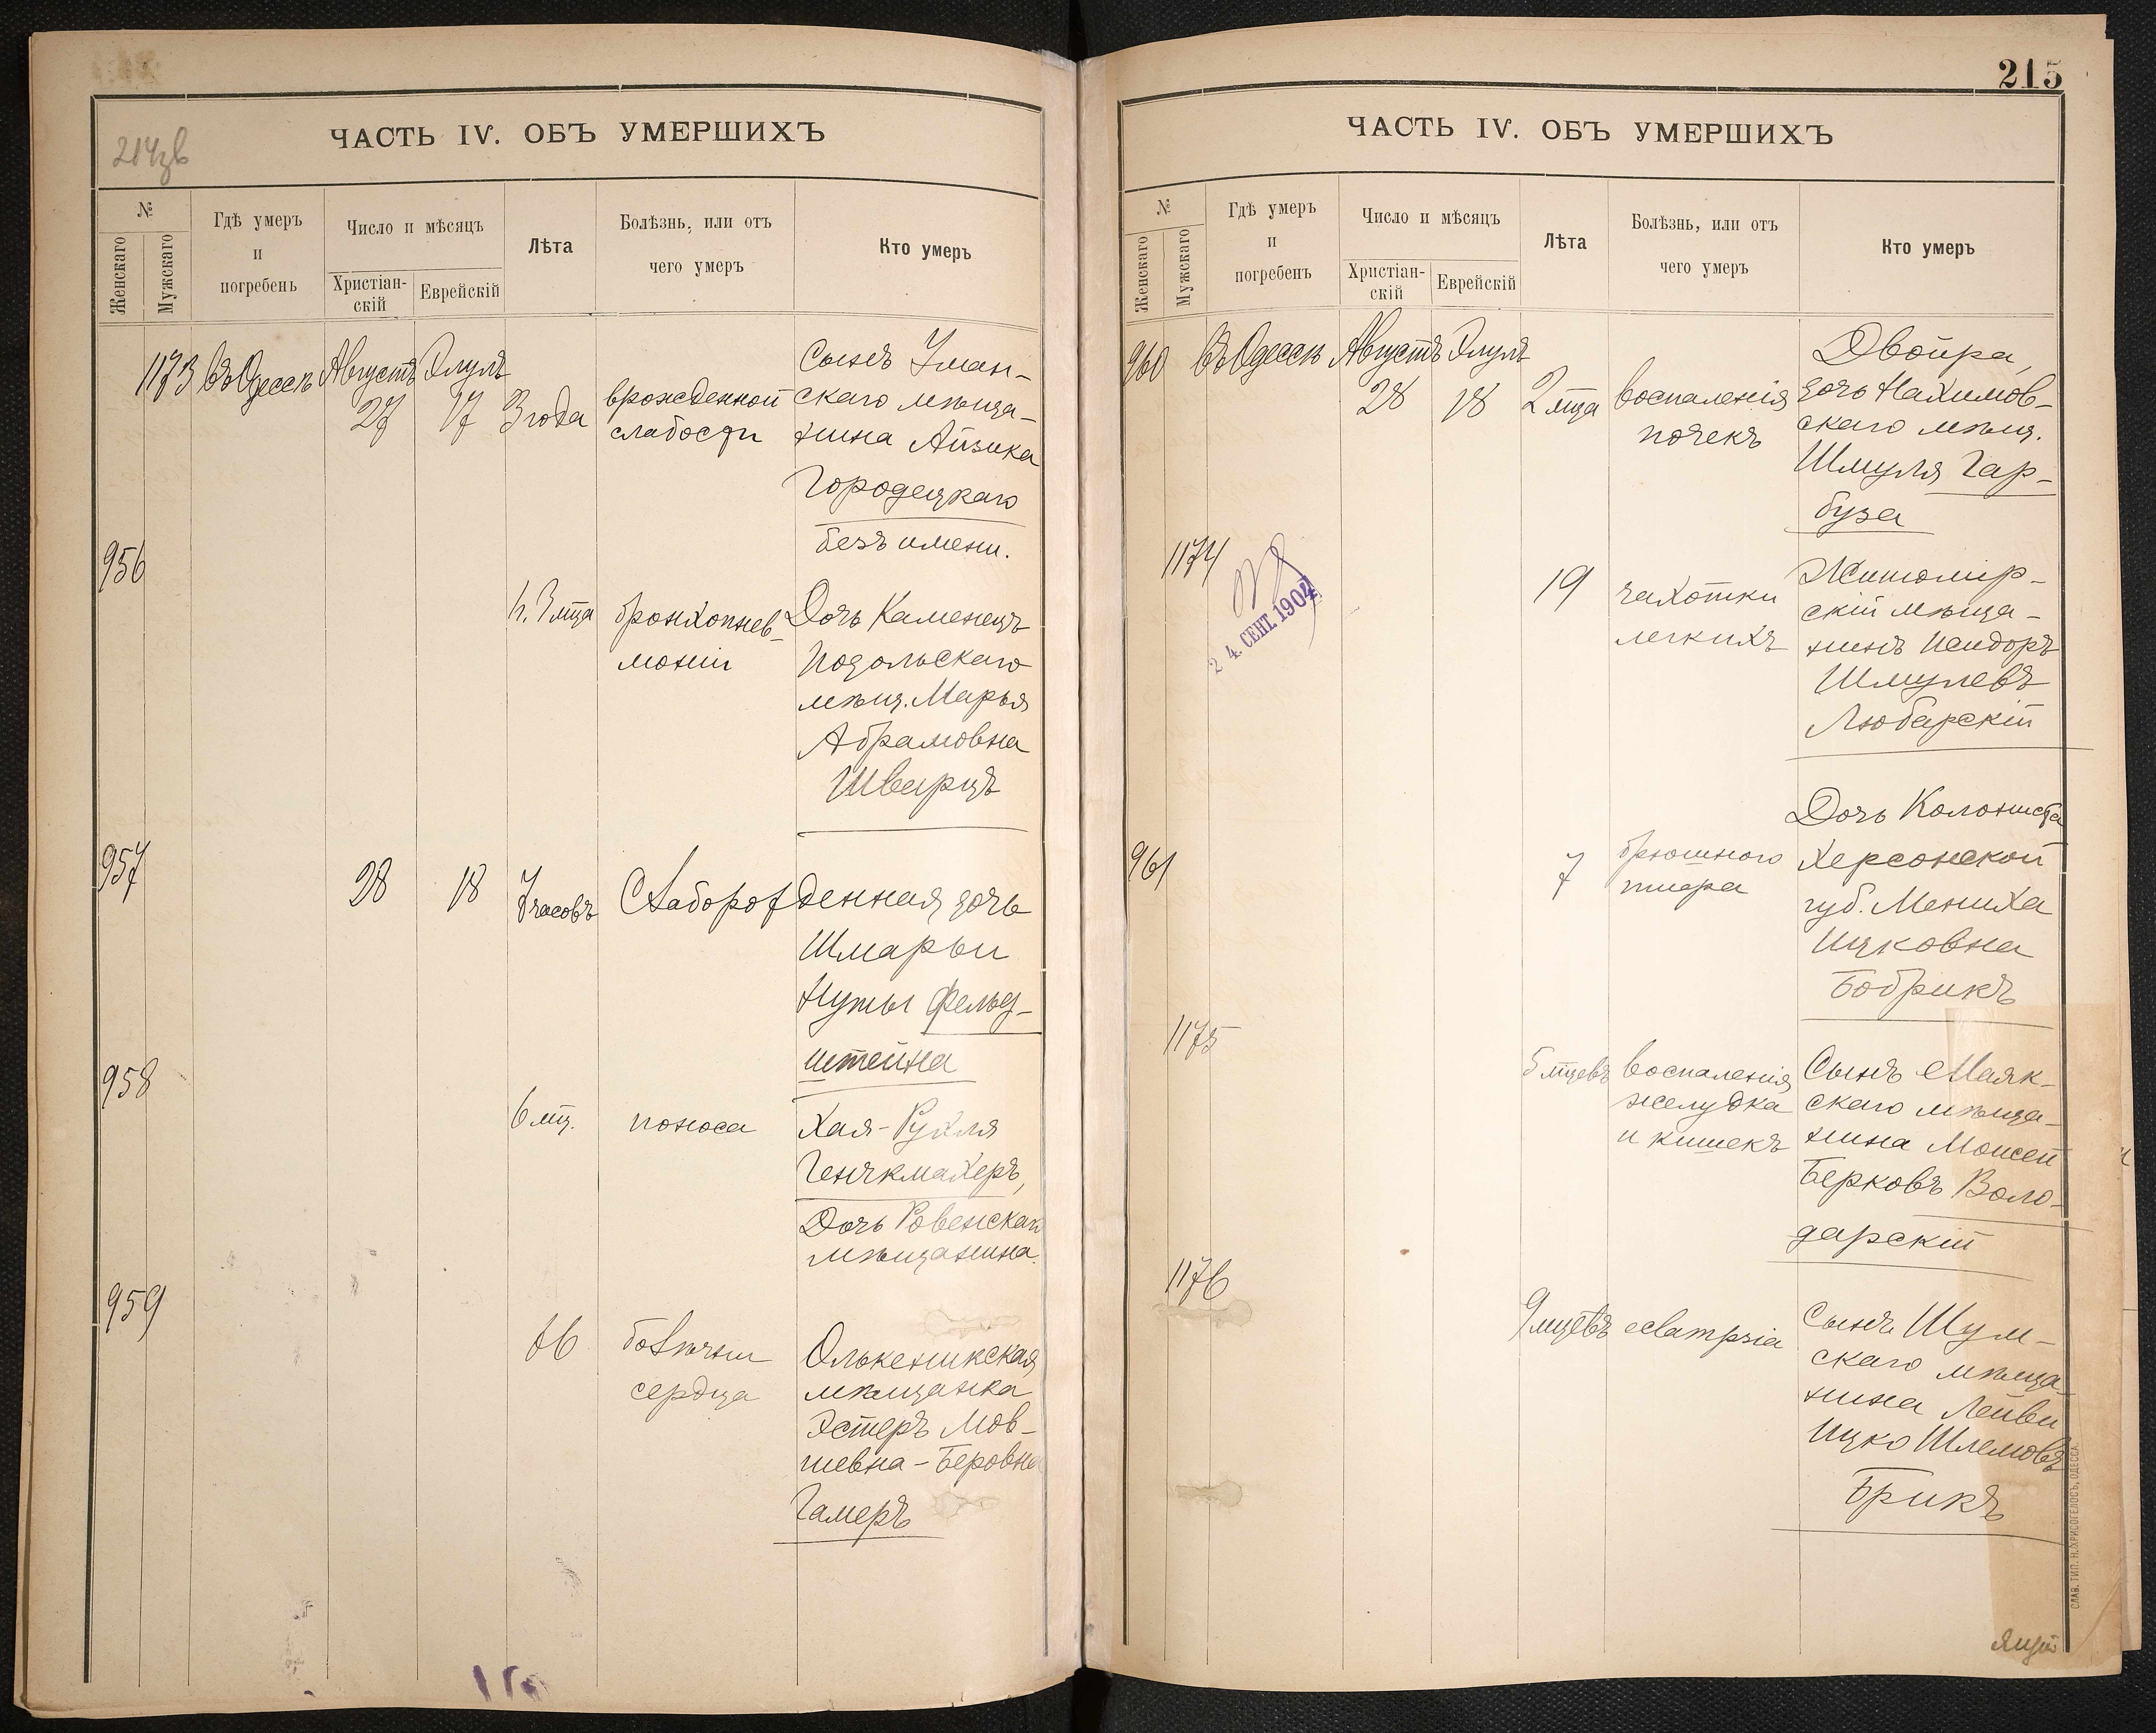 214зв
ЧАСТЬ IV. ОБЪ УМЕРШИХЪ
№
Женскаго
Мужскаго
Гдѣ умеръ
и
погребенъ
Число и мѣсяцъ
Христіан-
скій
Еврейскій
Лѣта
Болѣзнь, или отъ
чего умеръ
Кто умеръ
1173 въ Одессѣ Августъ Элулъ
27 17 3 года
врожденной
слабости
Сынъ Уман-
скаго мѣща-
нина Айзика
Городецкаго
безъ имени.
956
бронхопнев-
моніи
Дочь Каменецъ
Подольскаго
мѣщ. Марья
Абрамовна
Шварцъ
957
28 18 7 часовъ
Слаборожденная дочь
Шмарьи
Нуты Фельд-
штейна
958
6 мц. поноса
Хая-Рухля
Генчкмахеръ,
Дочь Ровенскаго
мѣщанина.
959
66
болѣзни
сердца
Олькеникская
мѣщанка
Эстеръ Мов-
шевна-Беровна
Гамеръ
215
ЧАСТЬ IV. ОБЪ УМЕРШИХЪ
№
Женскаго
Мужскаго
Гдѣ умеръ
и
погребенъ
Число и мѣсяцъ
Христіан-
скій
Еврейскій
Лѣта
Болѣзнь, или отъ
чего умеръ
Кто умеръ
960 въ Одессѣ Августъ Элулъ
28 18 2 мца
воспаленія
почекъ
Двойра,
дочь Нахимов-
скаго мѣщ.
Шмуля Гар-
буза
1174
24. СЕНТ. 1904
19
чахотки
легкихъ
Житомір-
скій мѣща-
нинъ Исидоръ
Шмулевъ
Любарскій
961
7
брюшного
тифа
Дочь Колониста
Херсонской
губ. Мениха
Ицковна
Бобрикъ
1175
5 мцевъ
воспаленія
желудка
и кишекъ
Сынъ Маяк-
скаго мѣща-
нина Моисей
Берковъ Воло-
дарскій
1176
9 мцевъ eclampsia
Сынъ Шум-
скаго мѣща-
нина Лейви
Ицко Шлемовъ
Брикъ
СЛАВ. ТИП. Н. ХРИСОГЕЛОСЪ, ОДЕССА.